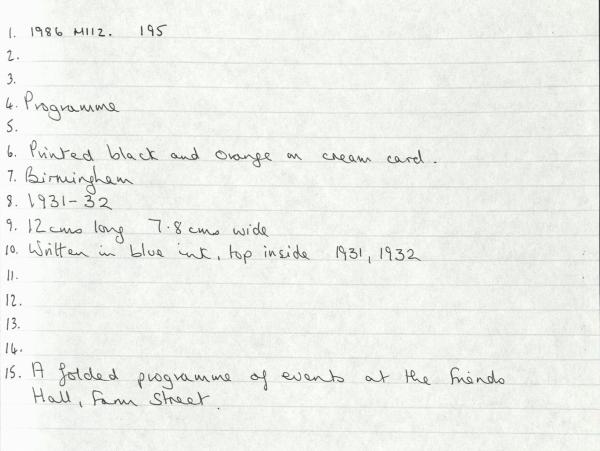 1. 1986 M112. 195
2.
3.
4. Programme
5.
6. Printed black and orange on cream card.
7. Birmingham
8. 1931-32
9. 12 cms long 7.8 cms wide
10. Written in blue ink, top inside 1931, 1932
11.
12.
13.
14.
15. A folded programme of events at the Friends
Hall, Farm Street.